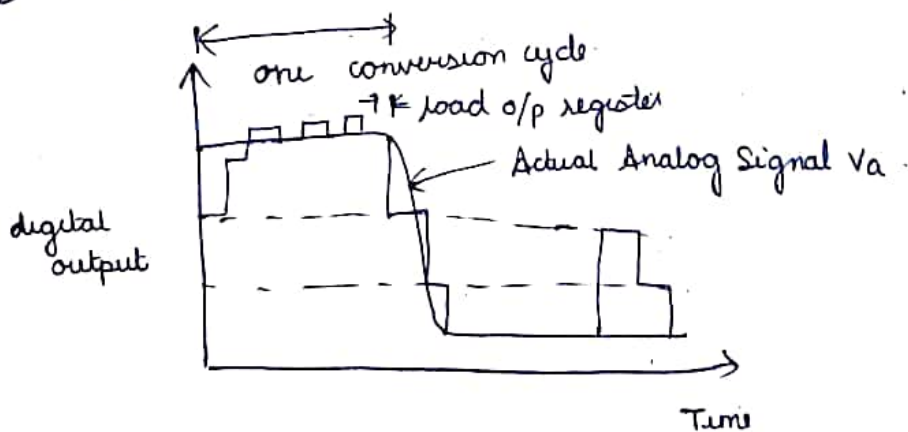 one conversion cycle
load o/p register
Actual Analog Signal Va
digital
output
Time